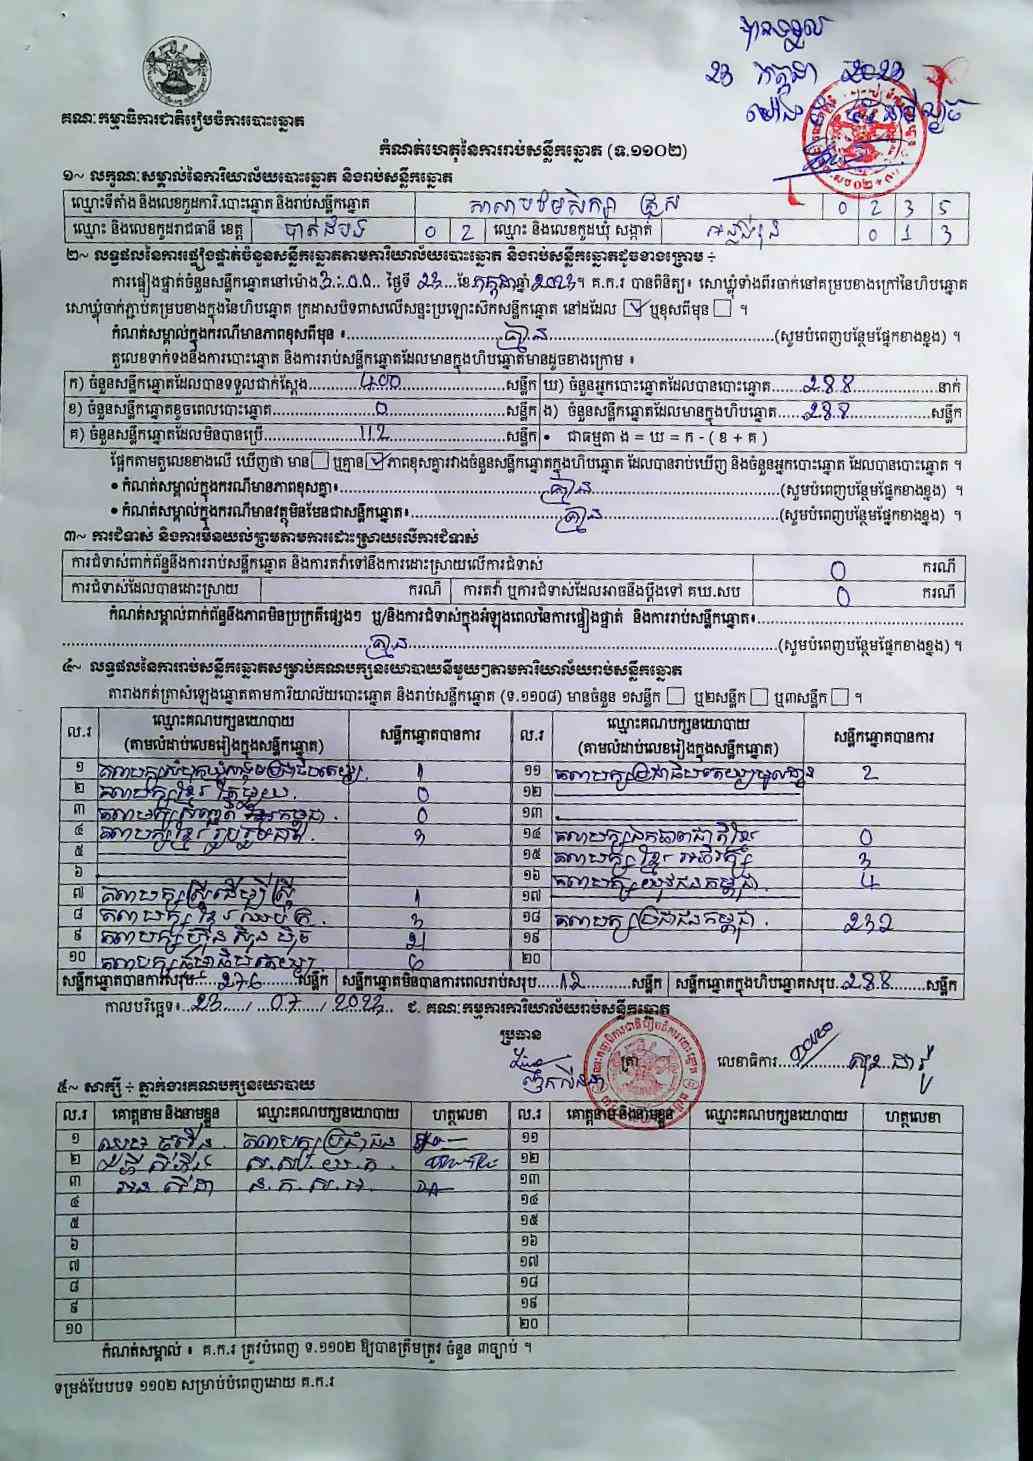 បានទទួល
23 កក្កដា 2023
គណៈកម្មាធិការជាតិរៀបចំការបោះឆ្នោត
កំណត់ហេតុនៃការរាប់សន្លឹកឆ្នោត (ទ.១១០២)
១~ លក្ខណៈសម្គាល់នៃការិយាល័យបោះឆ្នោត និងរាប់សន្លឹកឆ្នោត
ឈ្មោះទីតាំង និងលេខកូដការិ.បោះឆ្នោត និងរាប់សន្លឹកឆ្នោត សាលាបឋមសិក្សា 0 2 3 5
ឈ្មោះ និងលេខកូដរាជធានី ខេត្ត បាត់ដំបង 0 2 ឈ្មោះ និងលេខកូដឃុំ សង្កាត់ 0 1 3
២~ លទ្ធផលនៃការផ្ទៀងផ្ទាត់ចំនួនសន្លឹកឆ្នោតតាមការិយាល័យបោះឆ្នោត និងរាប់សន្លឹកឆ្នោតដូចខាងក្រោម ÷
ការផ្ទៀងផ្ទាត់ចំនួនសន្លឹកឆ្នោតនៅម៉ោង 3:00 ថ្ងៃទី 23 ខែ កក្កដា ឆ្នាំ 2023 ។ គ.ក.រ បានពិនិត្យ៖ សោឃ្លុំទាំងពីរចាក់នៅគម្របខាងក្រៅនៃហិបឆ្នោត
សោឃ្លុំចាក់ភ្ជាប់គម្របខាងក្នុងនៃហិបឆ្នោត ក្រដាសបិទពាសលើសន្ទះប្រឡោះសិកសន្លឹកឆ្នោត នៅដដែល ☑ ឬខុសពីមុន ☐ ។
កំណត់សម្គាល់ក្នុងករណីមានភាពខុសពីមុន ៖ គ្មាន (សូមបំពេញបន្ថែមផ្នែកខាងខ្នង) ។
តួលេខទាក់ទងនឹងការបោះឆ្នោត និងការរាប់សន្លឹកឆ្នោតដែលមានក្នុងហិបឆ្នោតមានដូចខាងក្រោម ៖
ក) ចំនួនសន្លឹកឆ្នោតដែលបានទទួលជាក់ស្តែង 400 សន្លឹក ឃ) ចំនួនអ្នកបោះឆ្នោតដែលបានបោះឆ្នោត 288 នាក់
ខ) ចំនួនសន្លឹកឆ្នោតខូចពេលបោះឆ្នោត 0 សន្លឹក ង) ចំនួនសន្លឹកឆ្នោតដែលមានក្នុងហិបឆ្នោត 288 សន្លឹក
គ) ចំនួនសន្លឹកឆ្នោតដែលមិនបានប្រើ 112 សន្លឹក • ជាធម្មតា ង = ឃ = ក - ( ខ + គ )
ផ្អែកតាមតួលេខខាងលើ ឃើញថា មាន ☐ ឬគ្មាន ☑ ភាពខុសគ្នារវាងចំនួនសន្លឹកឆ្នោតក្នុងហិបឆ្នោត ដែលបានរាប់ឃើញ និងចំនួនអ្នកបោះឆ្នោត ដែលបានបោះឆ្នោត ។
• កំណត់សម្គាល់ក្នុងករណីមានភាពខុសគ្នា៖ គ្មាន (សូមបំពេញបន្ថែមផ្នែកខាងខ្នង) ។
• កំណត់សម្គាល់ក្នុងករណីមានវត្ថុមិនមែនជាសន្លឹកឆ្នោត៖ គ្មាន (សូមបំពេញបន្ថែមផ្នែកខាងខ្នង) ។
៣~ ការជំទាស់ និងការមិនយល់ព្រមតាមការដោះស្រាយលើការជំទាស់
ការជំទាស់ពាក់ព័ន្ធនឹងការរាប់សន្លឹកឆ្នោត និងការតវ៉ាទៅនឹងការដោះស្រាយលើការជំទាស់ 0 ករណី
ការជំទាស់ដែលបានដោះស្រាយ ករណី ការតវ៉ា ឬការជំទាស់ដែលអាចនឹងប្តឹងទៅ គឃ.សប 0 ករណី
កំណត់សម្គាល់ពាក់ព័ន្ធនឹងភាពមិនប្រក្រតីផ្សេងៗ ឬ/និងការជំទាស់ក្នុងអំឡុងពេលនៃការផ្ទៀងផ្ទាត់ និងការរាប់សន្លឹកឆ្នោត៖
គ្មាន (សូមបំពេញបន្ថែមផ្នែកខាងខ្នង) ។
៤~ លទ្ធផលនៃការរាប់សន្លឹកឆ្នោតសម្រាប់គណបក្សនយោបាយនីមួយៗតាមការិយាល័យរាប់សន្លឹកឆ្នោត
តារាងកត់ត្រាសំឡេងឆ្នោតតាមការិយាល័យបោះឆ្នោត និងរាប់សន្លឹកឆ្នោត (ទ.១១០៨) មានចំនួន ១សន្លឹក ☐ ឬ២សន្លឹក ☐ ឬ៣សន្លឹក ☐ ។
ល.រ ឈ្មោះគណបក្សនយោបាយ (តាមលំដាប់លេខរៀងក្នុងសន្លឹកឆ្នោត) សន្លឹកឆ្នោតបានការ ល.រ ឈ្មោះគណបក្សនយោបាយ (តាមលំដាប់លេខរៀងក្នុងសន្លឹកឆ្នោត) សន្លឹកឆ្នោតបានការ
១ គណបក្សសំបុកឃ្មុំសង្គមប្រជាធិបតេយ្យ 1 ១១ គណបក្សប្រជាធិបតេយ្យមូលដ្ឋាន 2
២ គណបក្សខ្មែរតែមួយ 0 ១២
៣ គណបក្សកម្ពុជា 0 ១៣
៤ គណបក្សខ្មែររួបរួមជាតិ 3 ១៤ គណបក្សឯកភាពជាតិខ្មែរ 0
៥ ១៥ គណបក្សខ្មែរអភិរក្ស 3
៦ ១៦ គណបក្សយុវជនកម្ពុជា 4
៧ គណបក្សស្ត្រីដើម្បីស្ត្រី 1 ១៧
៨ គណបក្សខ្មែរឈប់ក្រ 3 ១៨ គណបក្សប្រជាជនកម្ពុជា 232
៩ គណបក្សហ៊្វុនស៊ិនប៉ិច 21 ១៩
១០ គណបក្សធម្មាធិបតេយ្យ 6 ២០
សន្លឹកឆ្នោតបានការសរុប 276 សន្លឹក សន្លឹកឆ្នោតមិនបានការពេលរាប់សរុប 12 សន្លឹក សន្លឹកឆ្នោតក្នុងហិបឆ្នោតសរុប 288 សន្លឹក
កាលបរិច្ឆេទ៖ 23 / 07 / 2023 ជ. គណៈកម្មការការិយាល័យរាប់សន្លឹកឆ្នោត
ប្រធាន
ត្រា លេខាធិការ
៥~ សាក្សី ÷ ភ្នាក់ងារគណបក្សនយោបាយ
ល.រ គោត្តនាម និងនាមខ្លួន ឈ្មោះគណបក្សនយោបាយ ហត្ថលេខា ល.រ គោត្តនាម និងនាមខ្លួន ឈ្មោះគណបក្សនយោបាយ ហត្ថលេខា
១ គណបក្សប្រជាជន ១១
២ ១២
៣ ១៣
៤ ១៤
៥ ១៥
៦ ១៦
៧ ១៧
៨ ១៨
៩ ១៩
១០ ២០
កំណត់សម្គាល់ ៖ គ.ក.រ ត្រូវបំពេញ ទ.១១០២ ឱ្យបានត្រឹមត្រូវ ចំនួន ៣ច្បាប់ ។
ទម្រង់បែបបទ ១១០២ សម្រាប់បំពេញដោយ គ.ក.រ